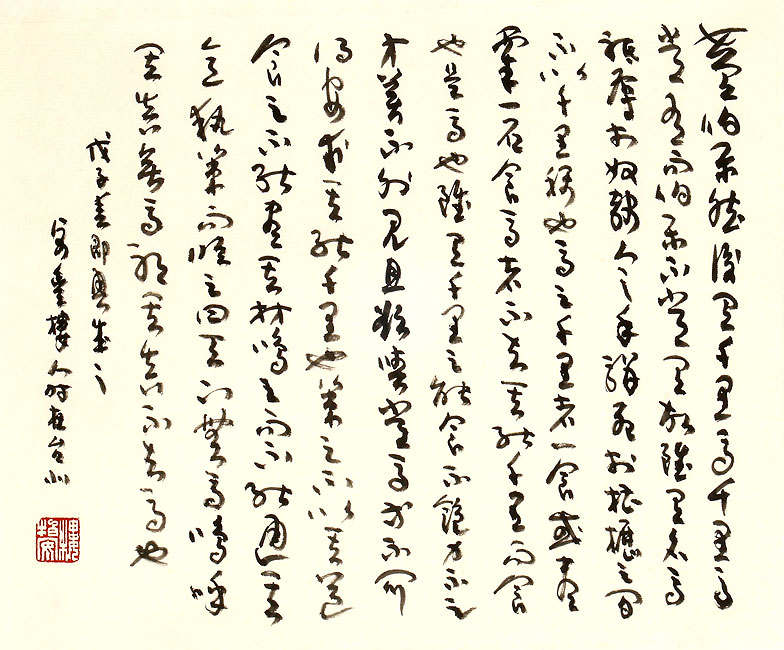 世有伯樂然後有千里馬千里馬
常有而伯樂不常有故雖有名馬
祇辱於奴隸人之手駢死於槽櫪之間
不以千里稱也馬之千里者一食或盡
粟一石食馬者不知其能千里而食
也是馬也雖有千里之能食不飽力不足
才美不外見且欲與常馬等不可
得安求其能千里也策之不以其道
食之不能盡其材鳴之而不能通其
意執策而臨之曰天下無馬嗚呼
其真無馬邪其真不知馬也
戊子春即興之
樓人時在台北